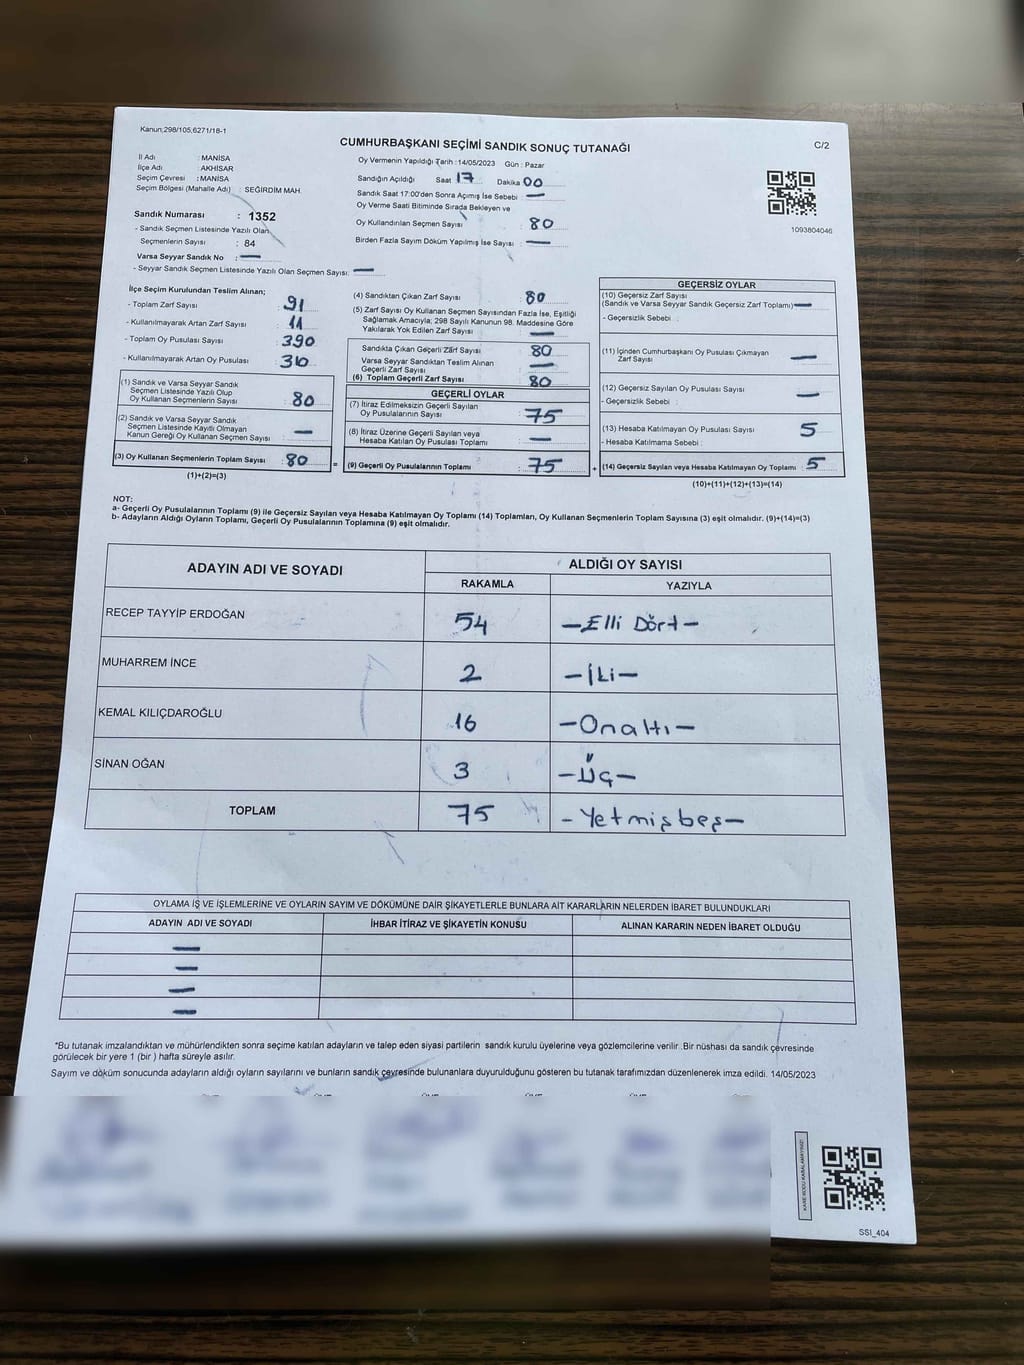 Kanun;298/105,6271/18-1
CUMHURBAŞKANI SEÇİMİ SANDIK SONUÇ TUTANAĞI
C/2
İl Adı : MANİSA
İlçe Adı : AKHİSAR
Seçim Çevresi : MANİSA
Seçim Bölgesi (Mahalle Adı) : SEĞİRDİM MAH.
Oy Vermenin Yapıldığı Tarih :14/05/2023 Gün : Pazar
Sandığın Açıldığı Saat 17 Dakika 00
Sandık Saat 17:00'den Sonra Açımış İse Sebebi : —
Oy Verme Saati Bitiminde Sırada Bekleyen ve
Oy Kullandırılan Seçmen Sayısı : 80
Birden Fazla Sayım Döküm Yapılmış İse Sayısı : —
1093804046
Sandık Numarası : 1352
- Sandık Seçmen Listesinde Yazılı Olan
Seçmenlerin Sayısı : 84
Varsa Seyyar Sandık No : —
- Seyyar Sandık Seçmen Listesinde Yazılı Olan Seçmen Sayısı: —
İlçe Seçim Kurulundan Teslim Alınan;
- Toplam Zarf Sayısı : 91
- Kullanılmayarak Artan Zarf Sayısı : 11
- Toplam Oy Pusulası Sayısı : 390
- Kullanılmayarak Artan Oy Pusulası : 310
(1) Sandık ve Varsa Seyyar Sandık
Seçmen Listesinde Yazılı Olup
Oy Kullanan Seçmenlerin Sayısı : 80
(2) Sandık ve Varsa Seyyar Sandık
Seçmen Listesinde Kayıtlı Olmayan
Kanun Gereği Oy Kullanan Seçmen Sayısı : —
(3) Oy Kullanan Seçmenlerin Toplam Sayısı : 80
(1)+(2)=(3)
(4) Sandıktan Çıkan Zarf Sayısı : 80
(5) Zarf Sayısı Oy Kullanan Seçmen Sayısından Fazla İse, Eşitliği
Sağlamak Amacıyla; 298 Sayılı Kanunun 98. Maddesine Göre
Yakılarak Yok Edilen Zarf Sayısı : —
Sandıkta Çıkan Geçerli Zarf Sayısı : 80
Varsa Seyyar Sandıktan Teslim Alınan
Geçerli Zarf Sayısı : —
(6) Toplam Geçerli Zarf Sayısı : 80
GEÇERLİ OYLAR
(7) İtiraz Edilmeksizin Geçerli Sayılan
Oy Pusulalarının Sayısı : 75
(8) İtiraz Üzerine Geçerli Sayılan veya
Hesaba Katılan Oy Pusulası Toplamı : —
= (9) Geçerli Oy Pusulalarının Toplamı : 75 +
GEÇERSİZ OYLAR
(10) Geçersiz Zarf Sayısı
(Sandık ve Varsa Seyyar Sandık Geçersiz Zarf Toplamı) —
- Geçersizlik Sebebi :
(11) İçinden Cumhurbaşkanı Oy Pusulası Çıkmayan
Zarf Sayısı : —
(12) Geçersiz Sayılan Oy Pusulası Sayısı : —
- Geçersizlik Sebebi :
(13) Hesaba Katılmayan Oy Pusulası Sayısı : 5
- Hesaba Katılmama Sebebi :
(14) Geçersiz Sayılan veya Hesaba Katılmayan Oy Toplamı : 5
(10)+(11)+(12)+(13)=(14)
NOT:
a- Geçerli Oy Pusulalarının Toplamı (9) ile Geçersiz Sayılan veya Hesaba Katılmayan Oy Toplamı (14) Toplamları, Oy Kullanan Seçmenlerin Toplam Sayısına (3) eşit olmalıdır. (9)+(14)=(3)
b- Adayların Aldığı Oyların Toplamı, Geçerli Oy Pusulalarının Toplamına (9) eşit olmalıdır.
ADAYIN ADI VE SOYADI
ALDIĞI OY SAYISI
RAKAMLA YAZIYLA
RECEP TAYYİP ERDOĞAN 54 — Elli Dört —
MUHARREM İNCE 2 — İki —
KEMAL KILIÇDAROĞLU 16 — Onaltı —
SİNAN OĞAN 3 — Üç —
TOPLAM 75 — Yetmişbeş —
OYLAMA İŞ VE İŞLEMLERİNE VE OYLARIN SAYIM VE DÖKÜMÜNE DAİR ŞİKAYETLERLE BUNLARA AİT KARARLARIN NELERDEN İBARET BULUNDUKLARI
ADAYIN ADI VE SOYADI İHBAR İTİRAZ VE ŞİKAYETİN KONUSU ALINAN KARARIN NEDEN İBARET OLDUĞU
—
—
—
—
*Bu tutanak imzalandıktan ve mühürlendikten sonra seçime katılan adayların ve talep eden siyasi partilerin sandık kurulu üyelerine veya gözlemcilerine verilir. Bir nüshası da sandık çevresinde
görülecek bir yere 1 (bir ) hafta süreyle asılır.
Sayım ve döküm sonucunda adayların aldığı oyların sayılarını ve bunların sandık çevresinde bulunanlara duyurulduğunu gösteren bu tutanak tarafımızdan düzenlenerek imza edildi. 14/05/2023
SSI_404